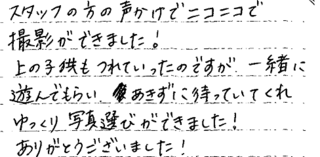 スタッフの方の声かけでニコニコで
撮影ができました！
上の子供もつれていったのですが、一緒に
遊んでもらい あきずに待っていてくれ
ゆっくり写真選びができました！
ありがとうございました！